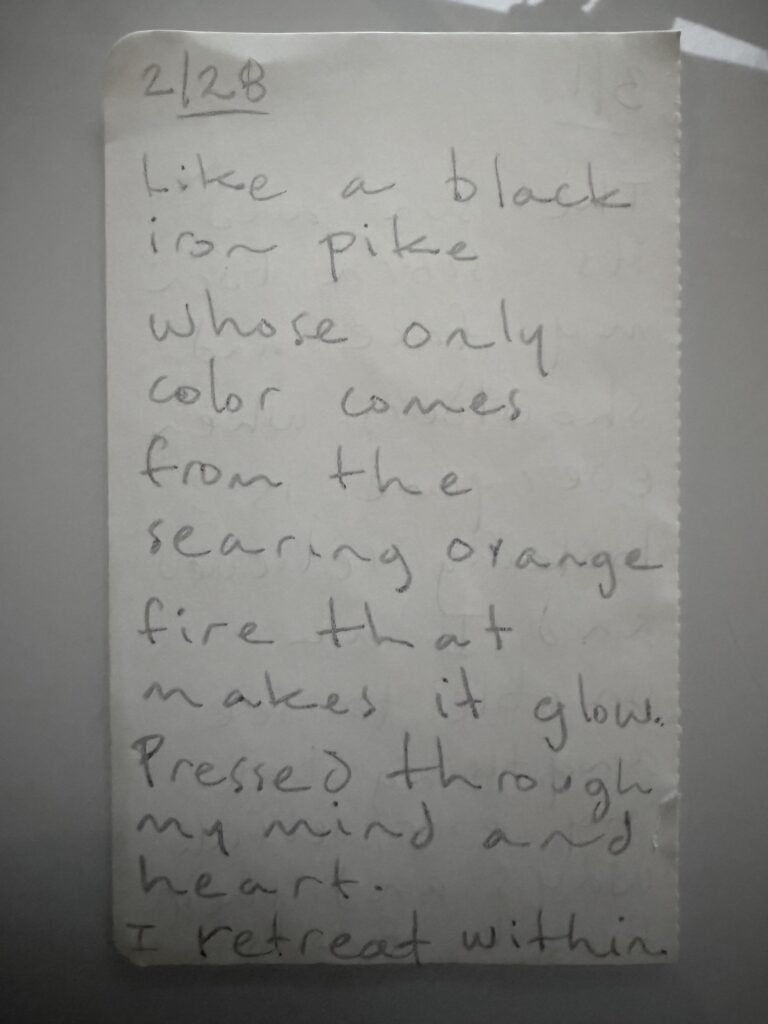 2/28
Like a black
iron pike
whose only
color comes
from the
searing orange
fire that
makes it glow.
Pressed through
my mind and
heart.
I retreat within.